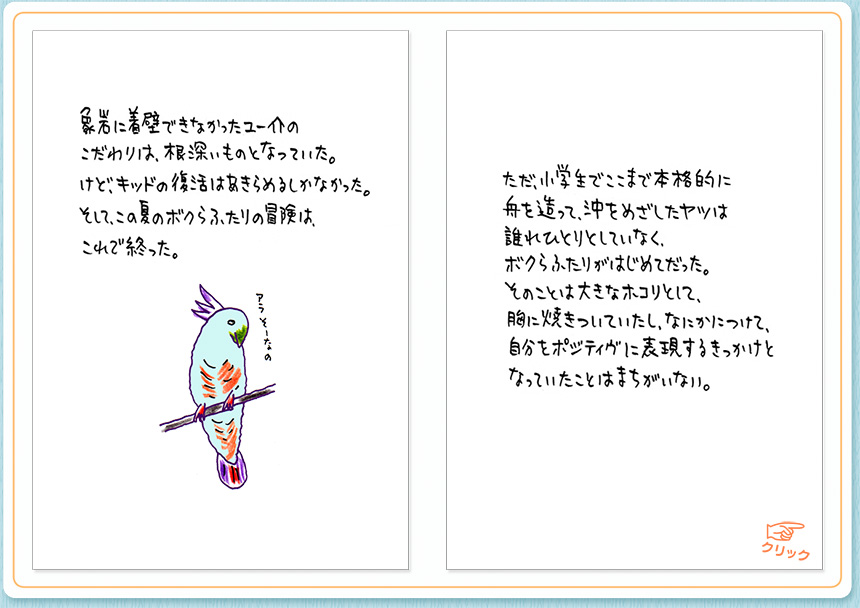 象岩に着壁できなかったユー介の
こだわりは、根深いものとなっていた。
けど、キッドの復活はあきらめるしかなかった。
そして、この夏のボクらふたりの冒険は、
これで終った。
アラ そーなの
ただ、小学生でここまで本格的に
舟を造って、沖をめざしたヤツは
誰れひとりとしていなく、
ボクらふたりがはじめてだった。
そのことは大きなホコリとして、
胸に焼きついていたし、なにかにつけて、
自分をポジティヴに表現するきっかけと
なっていたことはまちがいない。
クリック